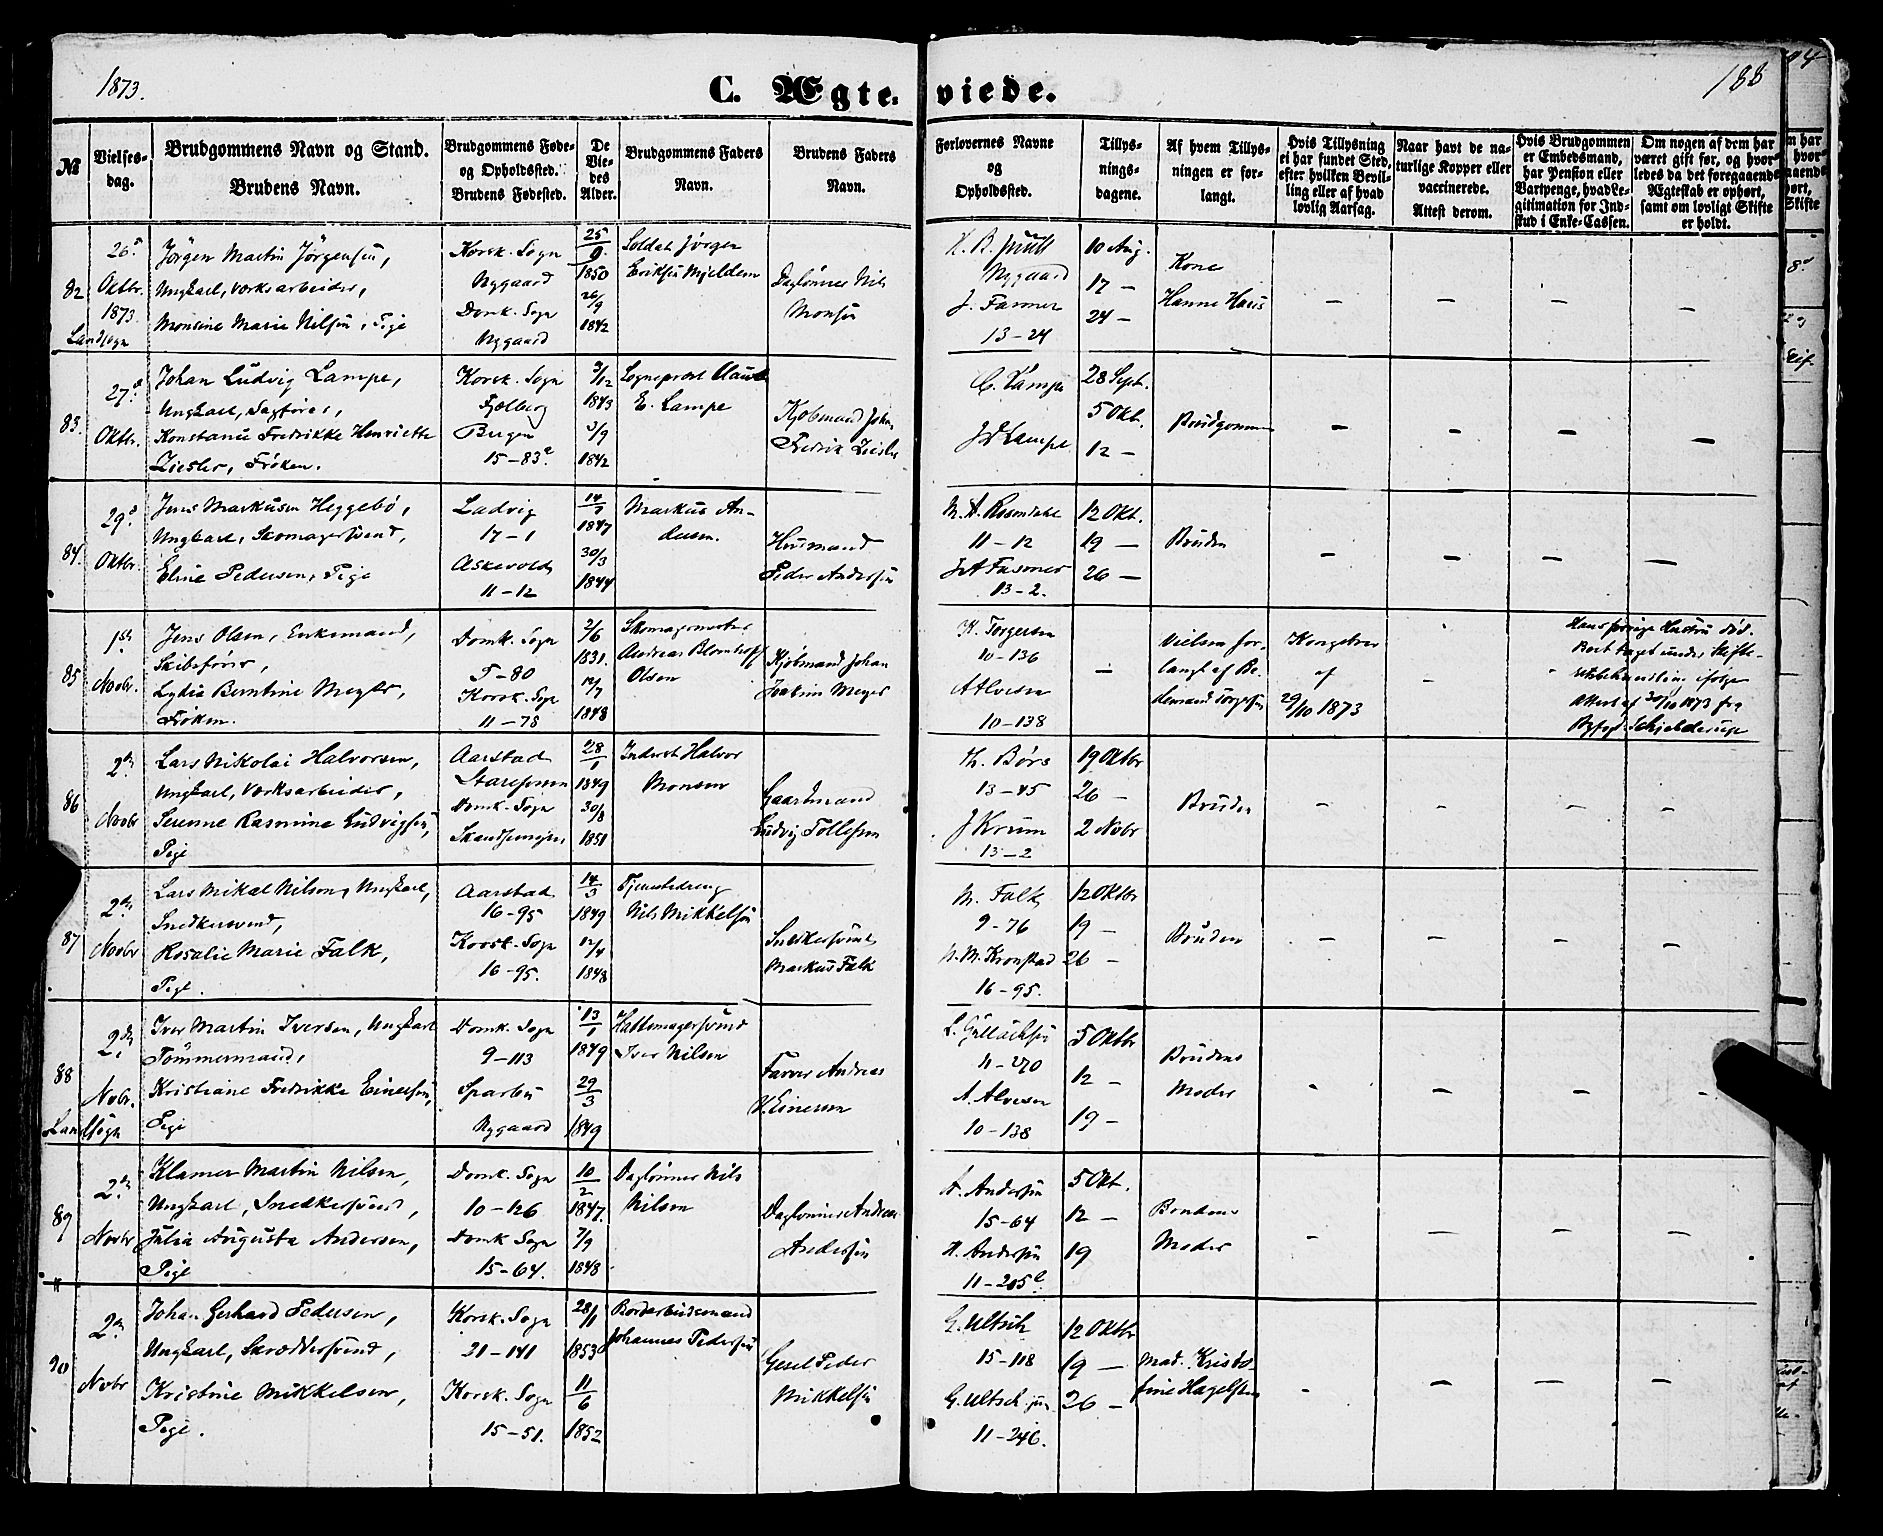 1873.
C. Ægteviede.
188
No
Vielsesdag.
Brudgommens Navn og Stand.
Brudens Navn.
Brudgommens Føde- og Opholdssted.
Brudens Fødested.
De Viedes Alder.
Brudgommens Faders Navn.
Brudens Faders Navn.
Forlovernes Navne og Opholdssted.
Tillysningsdagene.
Af hvem Tillysningen er forlangt.
Hvis Tillysning ei har fundet Sted, efter hvilken Bevilling eller af hvad lovlig Aarsag.
Naar havt de naturlige Kopper eller vaccinerede.
Attest derom.
Hvis Brudgommen er Embedsmand, har Pension eller Vartpenge, hvad Legitimation for Indskud i Enke-Cassen.
Om nogen af dem har været gift før, og hvorledes da det foregaaende Ægteskab er ophørt, samt om lovligt Skifte er holdt.
82
26de
Oktbr.
1873
Landsogn
Jørgen Martin Jørgensen,
Ungkarl, Værksarbeider,
Monsine Marie Nilsen, Pige
Korsk. Sogn
Nygaard
Domk. Sogn
Nygaard
25/9
1850
26/9
1842
Soldat Jørgen
Eriksen Mjeldem
Daglønner Nils
Monsen
Nygaard
J. Fasmer
13-24
10 Aug.
17 -
24 -
Kone
Hanne Haus
83.
27de
Oktbr.
Johan Ludvig Lampe,
Ungkarl, Sagfører,
Konstance Fredrikke Henriette
Ziesler, Frøken.
Korsk. Sogn
Fjelberg
Bergen
15-83a
3/12
1843
3/9
1842
Sogneprest Claus
E. Lampe
Kjøbmand Johan
Fredrik Ziesler
C. Lampe
J Lampe
28 Sept.
5 Okt.
12 -
Brudgommen
84.
29de
Oktbr.
Jens Markusen Heggebø,
Ungkarl, Skomagersvend,
Eline Pedersen, Pige
Ladvig
17-1
Askevold
11-12
14/1
1847
30/3
1844
Markus Andersen.
Husmand
Peder Andersen
M. A. Rosendahl
11-12
J A Fasmer
13-2.
12 Okt.
19 -
26 -
Bruden
85
1ste
Novbr.
Jens Olsen, Enkemand,
Skibsfører,
Lydia Berntine Meyer,
Frøken.
Domk. Sogn
5-80
Korsk. Sogn
11-78
2/6
1831.
12/7
1848
Skomagermester
Andreas Blomhoff
Olsen
Kjøbmand Johan
Joakim Meyer
K. Torgersen
10-136
A Alvesen
10-138
Vielsen forlangt af Bedemand Torgersen
Kongebrev
af
29/10 1873
Hans forrige Hustru død.
Boet taget under Skiftebehandling ifølge
Attest af 30/10 1873 fra
Byfoged Schjelderup
86
2den
Novbr
Lars Nikolai Halvorsen,
Ungkarl, Værksarbeider,
Serenne Rasmine Ludvigsen,
Pige
Aarstad
Domk. Sogn
28/1
1849
30/8
1851
Inderst Halvor
Monsen
Gaardmand
Ludvig Tollefsen
Th. Børs
13-45
J Krum
13-2
19 Oktbr
26 -
2 Novbr
Bruden
87
2den
Novbr
Lars Mikal Nilsen, Ungkarl,
Snedkersvend,
Rosalie Marie Falk,
Pige.
Aarstad
16-95
Korsk. Sogn
16-95.
14/3
1849
12/4
1848
Tjenestedreng
Nils Mikkelsen
Snedkersvend
Markus Falk
M. Falk
9-76
N. M. Kronstad
16-95.
12 Oktbr
19 -
26 -
Bruden
88
2den
Novbr.
Landsogn
Iver Martin Iversen, Ungkarl
Tømmermand,
Kristiane Fredrikke Einersen,
Pige
Domk. Sogn
9-113
Sparbu
Nygaard
13/1
1849
29/3
1849
Hattemagersvend
Iver Nilsen
Farver Andreas
H. Einersen
L. Gullachsen
11-270
A. Alvesen
10-138
5 Oktbr
12 -
19 -
Brudens
Moder
89
2den
Novbr
Klamer Martin Nilsen,
Ungkarl, Snedkersvend,
Julia Augusta Andersen,
Pige
Domk. Sogn
10-126
Domk Sogn
15-64.
10/2
1847.
7/9
1848
Daglønner Nils
Nilsen
Daglønner Andreas
Andersen
A. Andersen
15-64
H. Andersen
11-205b
5 Okt.
12 -
19
Brudens
Moder
90
2den
Novbr
Johan Gerhard Pedersen,
Ungkarl, Skræddersvend,
Kristine Mikkelsen,
Pige.
Korsk. Sogn
21-141
Korsk. Sogn
15-51.
28/1
1853
11/6
1852
Bordarbeidsmand
Johannes Pedersen
Gesel Peder
Mikkelsen
G. Ultsch
15-118
G. Ultsch jun
11-246.
12 Oktbr
19 -
26 -
Mad. Kristofine Hagelsteen